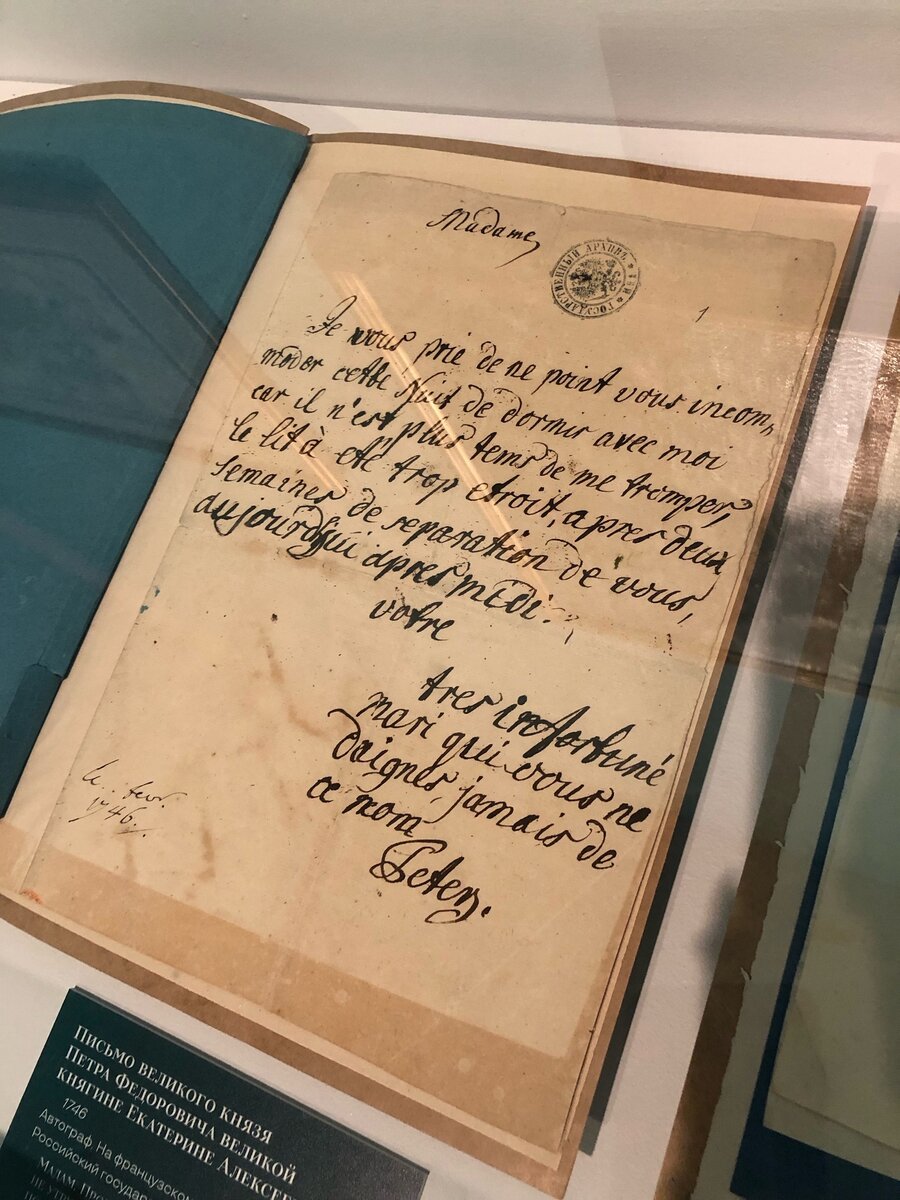 Madame,
ГОСУДАРСТВЕННЫЙ АРХИВЪ
1
Je vous prie de ne point vous incom„
moder cette Nuit de dormir avec moi
car il n'est plus tems de me tromper,
le lit à eté trop etroit, apres deux
semaines de separation de vous,
aujourdhui apres medi.
votre
tres infortuné
mari qui vous ne
daignes jamais de
ce nom
Peter.
le fevr.
1746.
Письмо великого князя
Петра Федоровича великой
княгине Екатерине Алексее
1746
Автограф. На французском
Российский государ
Мадам,